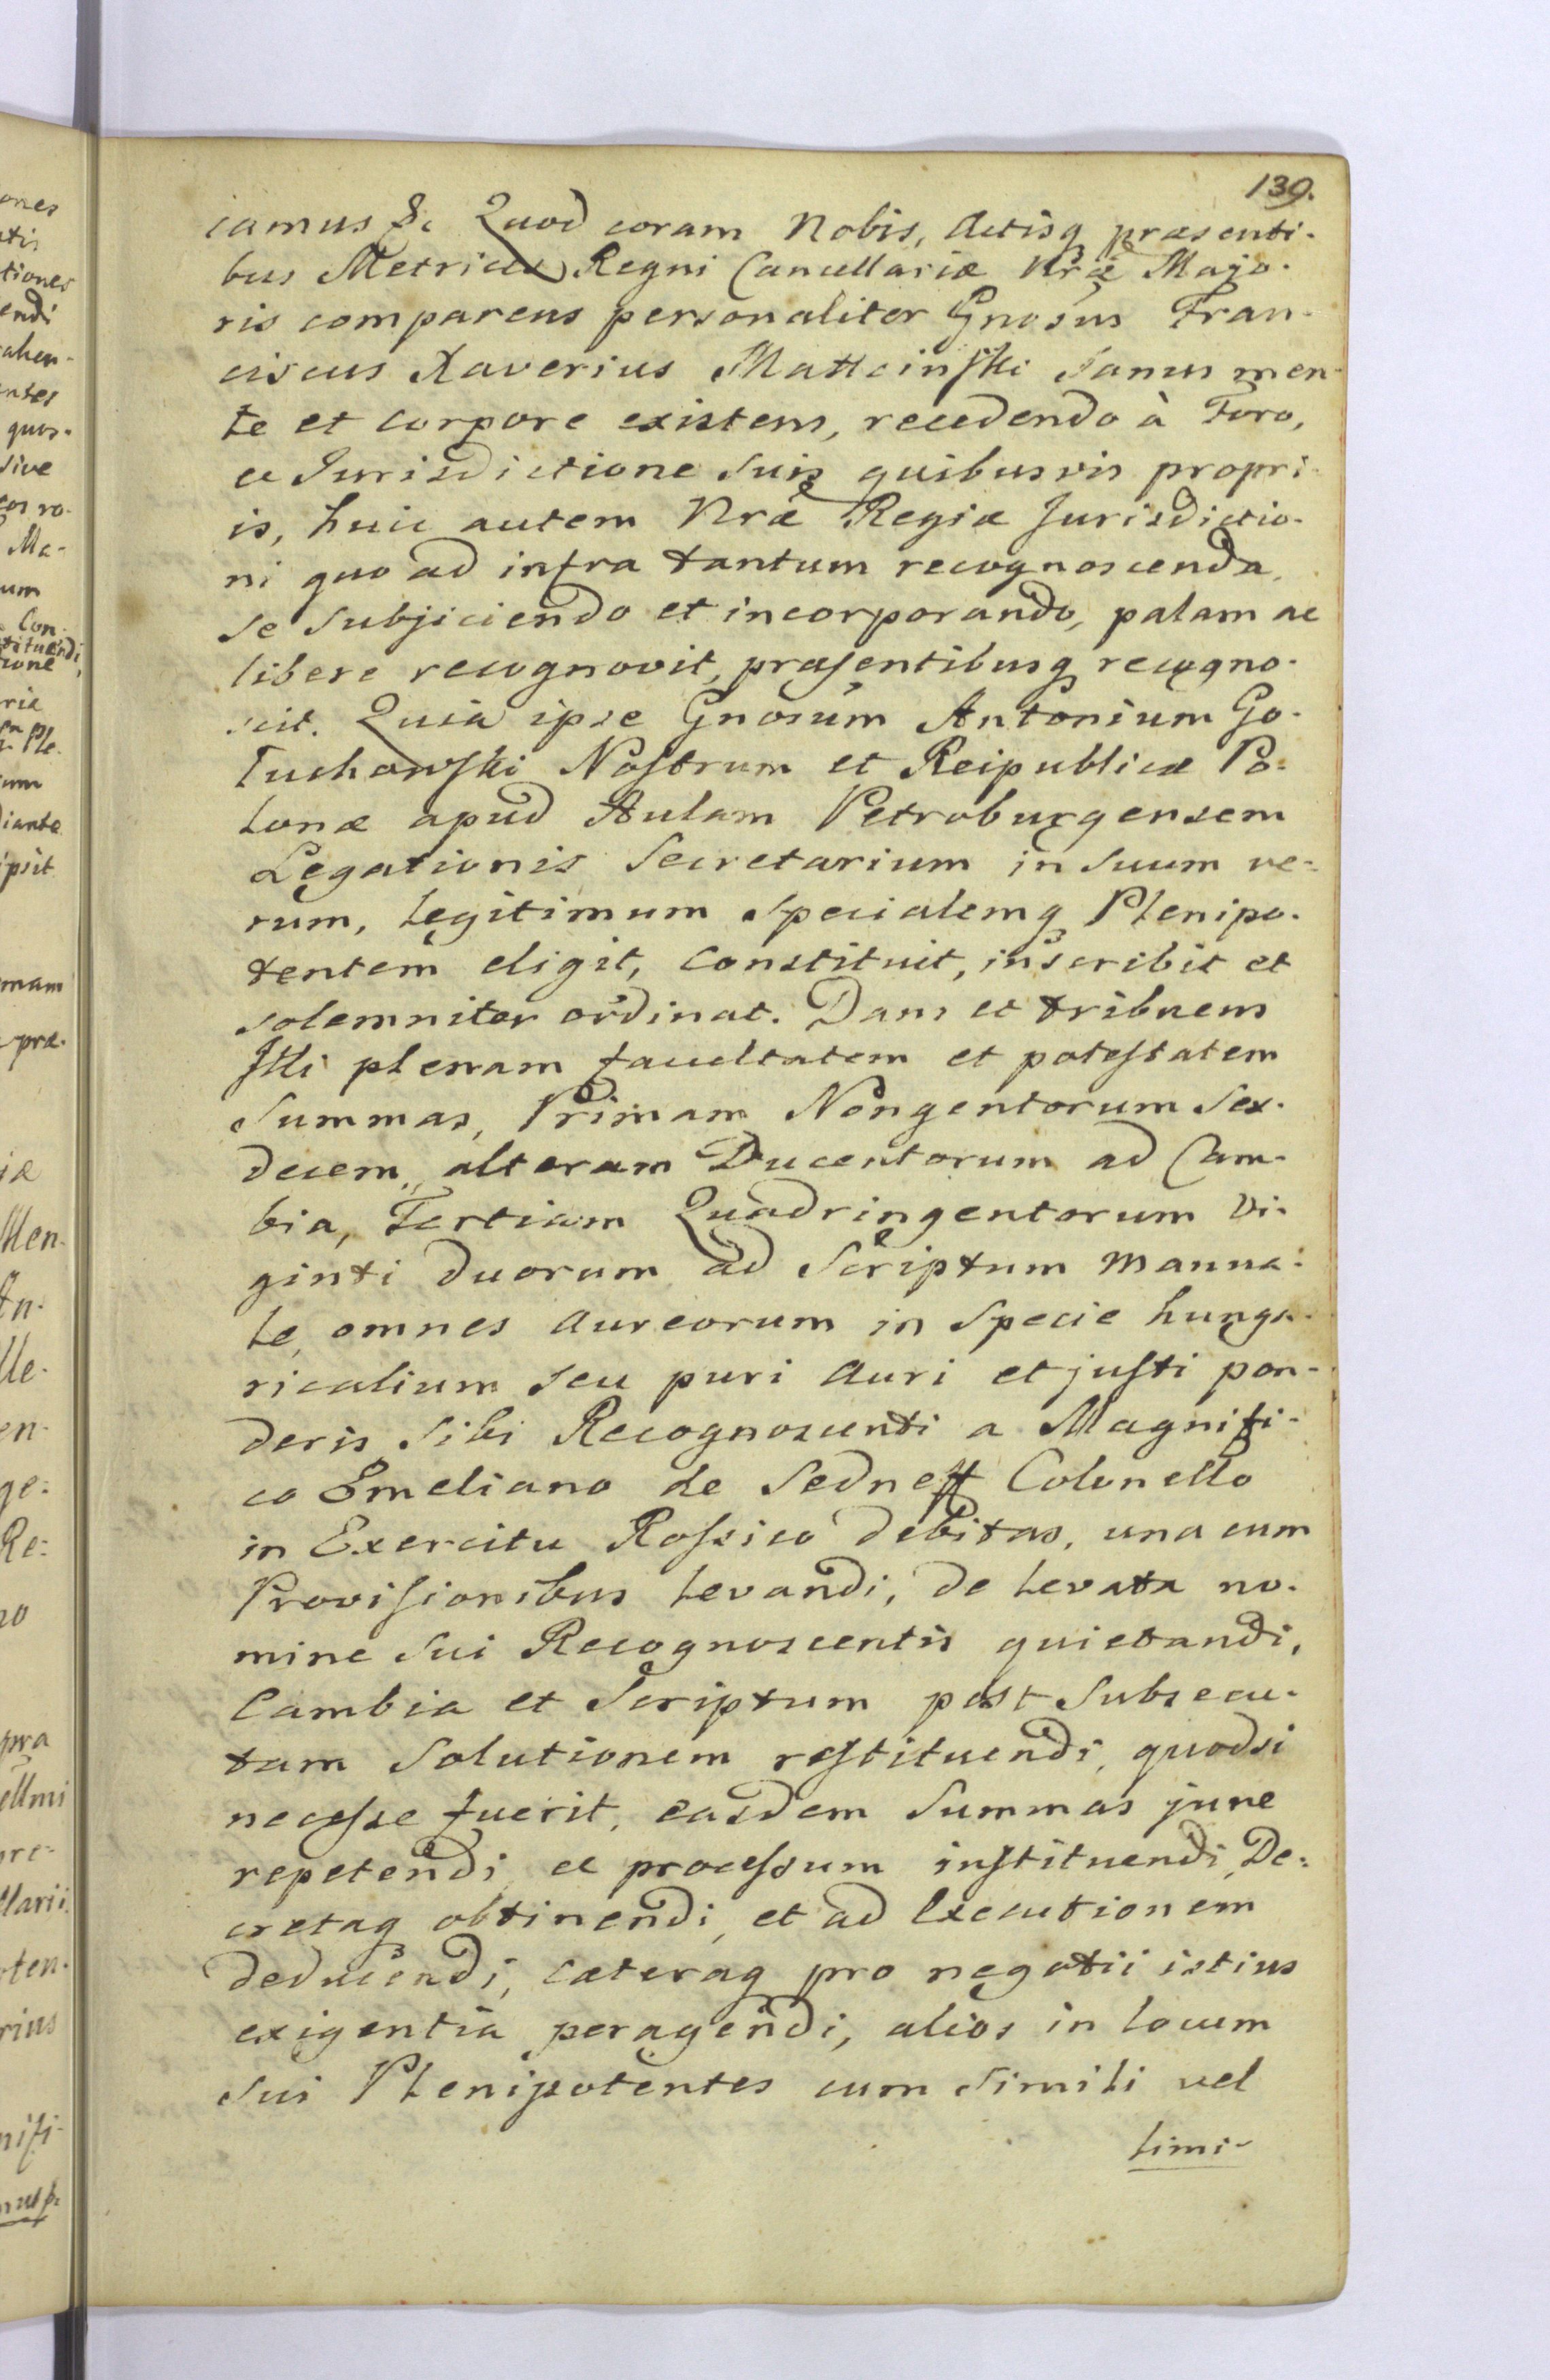 139.
camus &c Quod coram Nobis, Actisq præsenti-
bus Metrices Regni Cancellariæ Nræ Majo-
ris comparens personaliter Gnosus Fran-
ciscus Xaverius sanus men-
te et corpore existens, recedendo à Foro,
ac Jurisdictione suis quibusvis propri-
is, huic autem Nræ Regiæ Jurisdictio-
ni quo ad infra tantum recognoscenda,
se subjiciendo et incorporando, palam ac
libere recognovit, præsentibusq recogno-
scit. Quia ipse Gnosum Antonium Go-
luchowski Nostrum et Reipublicæ Po-
lonæ apud Aulam Petroburgensem
Legationis Secretarium in suum ve-
rum, legitimum specialemq Plenipo-
tentem eligit, constituit, inscribit et
solemniter ordinat. Dans et tribuens
Illi plenam facultatem et potestatem
Summas, Primam Nongentorum sex-
decem, alteram Ducentorum ad Cam-
bia, Tertiam Quadringentorum Vi-
ginti duorum ad Scriptum manua-
le, omnes aureorum in specie hunga-
ricalium seu puri auri et justi pon-
deris sibi Recognoscenti a Magnifi-
co Emeliano de Sedneff Colonello
in Exercitu Rossico debitas, una cum
Provisionibus levandi, de levata no-
mine sui Recognoscentis quietandi,
Cambia et Scriptum post subsecu-
tam solutionem restituendi, quodsi
necesse fuerit, easdem Summas jure
repetendi ac processum instituendi, De-
cretaq obtinendi, et ad Executionem
deducendi, cæteraq pro negotii istius
exigentia peragendi, alios in locum
sui Plenipotentes cum simili vel
limi-